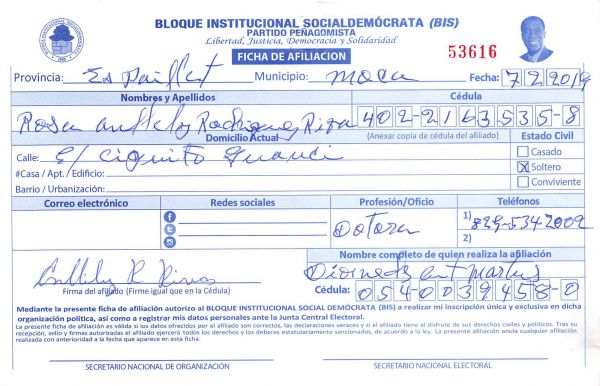 BLOQUE INSTITUCIONAL SOCIALDEMÓCRATA (BIS)
PARTIDO PEÑAGOMISTA
Libertad, Justicia, Democracia y Solidaridad
FICHA DE AFILIACION
53616
Provincia: Espaillat Municipio: Moca Fecha: 7 2 2019
Nombres y Apellidos Cédula
Rosa Rodriguez 402-2163535-8
Domicilio Actual (Anexar copia de cédula del afiliado) Estado Civil
Calle: E/
Casado
#Casa / Apt. / Edificio: X Soltero
Barrio / Urbanización: Conviviente
Correo electrónico Redes sociales Profesión/Oficio Teléfonos
Dotora 1) 829-534-2009
2)
Nombre completo de quien realiza la afiliación
Firma del afiliado (Firme igual que en la Cédula) Cédula: 054-0039458-0
Mediante la presente ficha de afiliación autorizo al BLOQUE INSTITUCIONAL SOCIAL DEMÓCRATA (BIS) a realizar mi inscripción única y exclusiva en dicha
organización política, así como a registrar mis datos personales ante la Junta Central Electoral.
La presente ficha de afiliación es válida si los datos ofrecidos por el afiliado son correctos, las declaraciones veraces y si el afiliado tiene el disfrute de sus derechos civiles y políticos. Tras su
recepción, sello y firmas autorizadas el afiliado ejercerá todos los derechos y los deberes estatutariamente sancionados, de acuerdo a la ley. La presente afiliación anula cualquier afiliación
realizada con anterioridad a la fecha que aparece en esta ficha.
SECRETARIO NACIONAL DE ORGANIZACIÓN SECRETARIO NACIONAL ELECTORAL